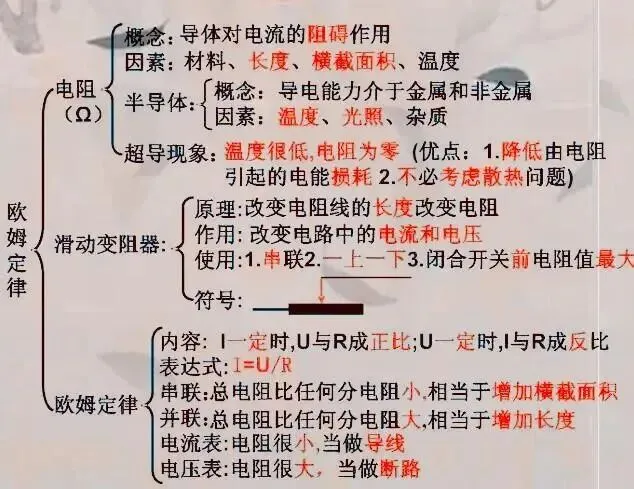 概念:导体对电流的阻碍作用
因素:材料、长度、横截面积、温度
电阻
(Ω)
半导体:
概念:导电能力介于金属和非金属
因素:温度、光照、杂质
超导现象:温度很低,电阻为零 (优点:1.降低由电阻
引起的电能损耗 2.不必考虑散热问题)
欧姆定律
滑动变阻器:
原理:改变电阻线的长度改变电阻
作用:改变电路中的电流和电压
使用:1.串联2.一上一下3.闭合开关前电阻值最大
符号:
欧姆定律
内容: I一定时,U与R成正比;U一定时,I与R成反比
表达式:I=U/R
串联:总电阻比任何分电阻小,相当于增加横截面积
并联:总电阻比任何分电阻大,相当于增加长度
电流表:电阻很小,当做导线
电压表:电阻很大，当做断路